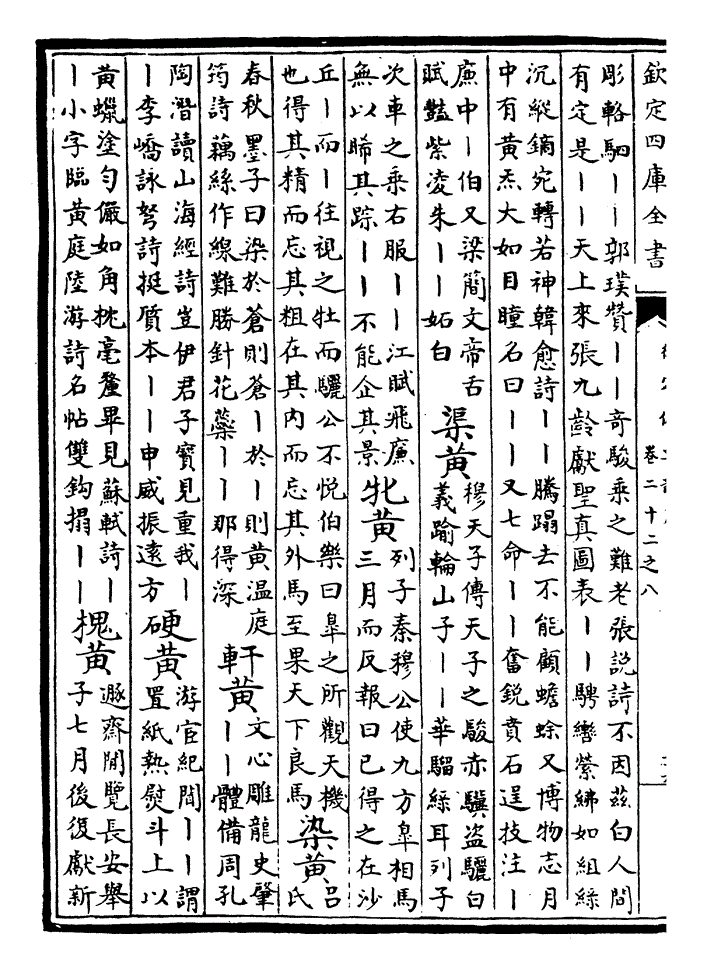 欽定四庫全書
卷二十二之八
彫輅駟丨丨郭璞贊丨丨奇駿乘之難老張說詩不因茲白人間
有定是丨丨天上來張九齡獻聖真圖表丨丨騁轡縈紼如組絲
沉縱鏑宛轉若神韓愈詩丨丨騰蹋去不能顧蟾蜍又博物志月
中有黃炁大如目瞳名曰丨丨又七命丨丨奮銳賁石逞技注丨
廉中丨伯又梁簡文帝古
賦豔紫凌朱丨丨妬白
渠黃
穆天子傳天子之駿赤驥盜驪白
義踰輪山子丨丨華騮綠耳列子
次車之乘右服丨丨江賦飛廉
無以睎其踪丨丨不能企其景
牝黃
列子秦穆公使九方皐相馬
三月而反報曰已得之在沙
丘丨而丨往視之牡而驪公不悅伯樂曰皐之所觀天機
也得其精而忘其粗在其內而忘其外馬至果天下良馬
染黃
呂
氏
春秋墨子曰染於蒼則蒼丨於丨則黃溫庭
筠詩藕絲作線難勝針花蘂丨丨那得深
軒黃
文心雕龍史肇
丨丨體備周孔
陶潛讀山海經詩豈伊君子寶見重我丨
丨李嶠詠弩詩挺質本丨丨申威振遠方
硬黃
游宦紀聞丨丨謂
置紙熱熨斗上以
黃蠟塗勻儼如角枕毫釐畢見蘇軾詩丨
丨小字臨黃庭陸游詩名帖雙鈎搨丨丨
槐黃
遯齋閒覽長安舉
子七月後復獻新